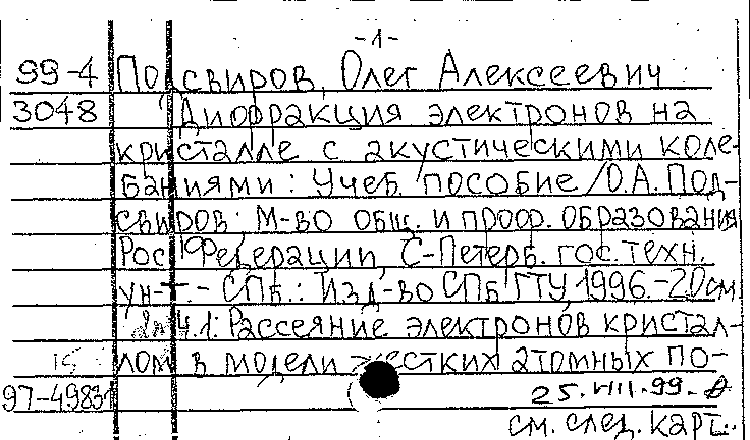 -1-
99-4 Подсвиров, Олег Алексеевич
3048 Дифракция электронов на
кристалле с акустическими коле-
баниями: Учеб. пособие / О.А. Под-
свиров; М-во общ. и проф. образования
Рос. Федерации, С-Петерб. гос. техн.
ун-т. - СПб.: Изд-во СПбГТУ, 1996.-20см.
Ч.1: Рассеяние электронов кристал-
15 лом в модели жестких атомных по-
97-49831 25.VIII.99.
см. след. карт.